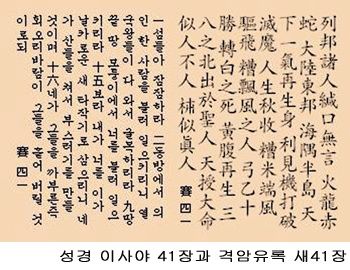 列邦諸人緘口無言 火龍赤
蛇 大陸東邦 海隅半島 天
下一氣再生身 利見機打破
滅魔人生秋收 糟米端風
驅飛糟飄風之人 弓乙十
勝 轉白之死 黃腹再生 三
八之北出於聖人 天授大命
似人不人 柿似眞人 賽四一
一섬들아 잠잠하라 二동방에서 의
인 한 사람을 불러 일으키리니 열
국 왕들이 다 와서 굴복하리라 九땅
끝 땅 모퉁이에서 너를 불러 일으
키리라 十五보라 내가 너를 이가
날카로운 새 타작기로 삼으리니 네
가 산들을 쳐서 부스러기를 만들
것이며 十六네가 그들을 까부른즉
회오리바람이 그들을 흩어 버릴 것
이로되 賽四一
성경 이사야 41장과 격암유록 새41장